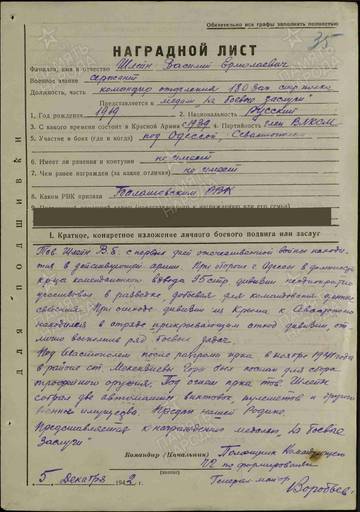 Обязательно все графы заполнять полностью
35
НАГРАДНОЙ ЛИСТ
Фамилия, имя и отчество Шлеин Василий Ермолаевич
Военное звание сержант
Должность, часть командир отделения 180 зап. стр. полка
Представляется к медали "За боевые заслуги"
1. Год рождения 1919 2. Национальность Русский
3. С какого времени состоит в Красной Армии с 1939 4. Партийность член ВЛКСМ
5. Участие в боях (где и когда) под Одессой, Севастополем
6. Имеет ли ранения и контузии не имеет
7. Чем ранее награжден (за какие отличия) не имеет
8. Каким РВК призван РВК
I. Краткое, конкретное изложение личного боевого подвига или заслуг
Тов. Шлеин В.Е. с первых дней отечественной войны находи-
тся в действующей армии. При обороне г. Одессы в должности
командира взвода 95 стр. дивизии неоднократно
участвовал в разведке, добывая для командования ценные
сведения. При отходе дивизии из Крыма к Севастополю
находился в отряде прикрывающем отход дивизии, от-
лично выполнил ряд боевых задач.
Под Севастополем после разгрома полка в ноябре 1941 года
в районе ст. Мекензиевы Горы был послан для сбора
трофейного оружия. Под огнем врага тов. Шлеин
собрал две автомашины винтовок, пулеметов и другого
военного имущества. Предан нашей Родине.
Представляется к награждению медалью "За боевые
заслуги"
Командир (Начальник) Помощник Командующего
по формированию
Генерал-майор
Воробьев
5 Декабря 1942 г.
для подшивки